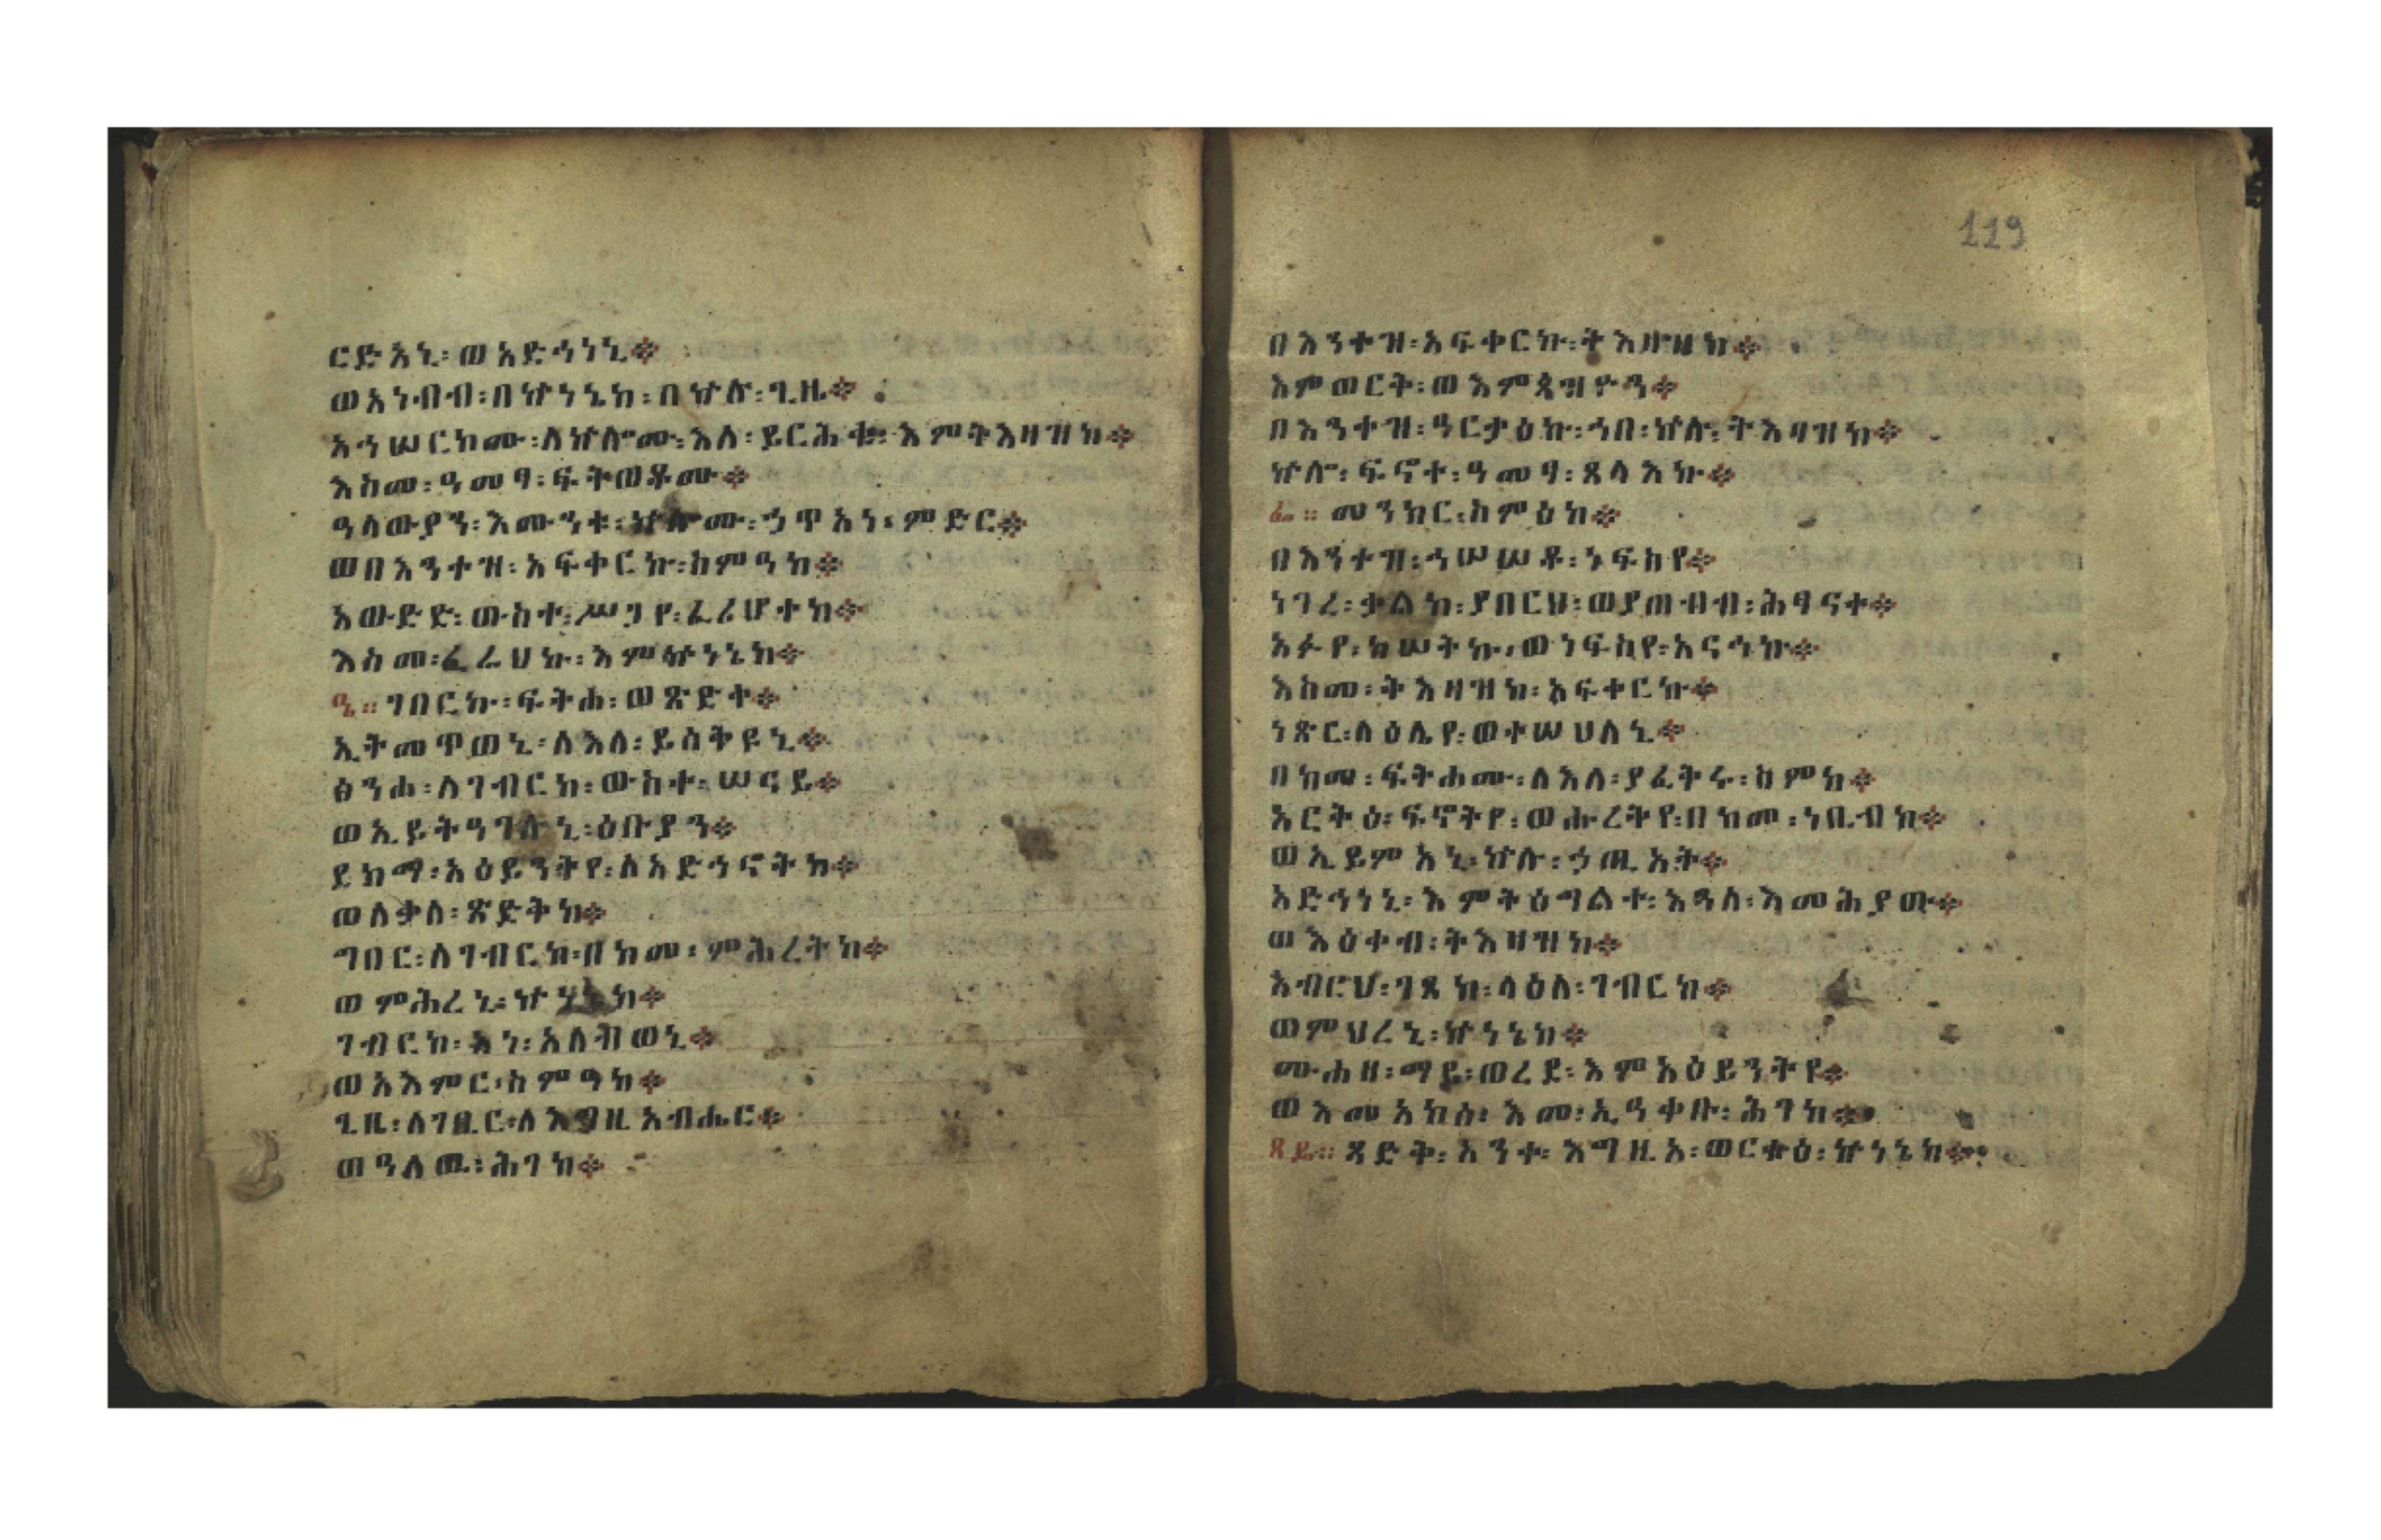 ርድአኒ፡ ወአድኅነኒ።
ወአነብብ፡ በኵነኔከ፡ በኵሉ፡ ጊዜ።
አኅሠርኮሙ፡ ለኵሎሙ፡ እለ፡ ይርሕቁ፡ እምትእዛዝከ።
እስመ፡ ዓመፃ፡ ፍትወቶሙ።
ዓላውያን፡ እሙንቱ፡ ኵሎሙ፡ ኃጥአነ፡ ምድር።
ወበእንተዝ፡ አፍቀርኩ፡ ስምዓከ።
አውድድ፡ ውስተ፡ ሥጋየ፡ ፈሪሆተከ።
እስመ፡ ፈራህኩ፡ እምኵነኔከ።
ዔ። ገበርኩ፡ ፍትሐ፡ ወጽድቀ።
ኢትመጥወኒ፡ ለእለ፡ ይስትዩኒ።
ፅንሐ፡ ለገብርከ፡ ውስተ፡ ሠናይ።
ወኢይትዓገሉኒ፡ ዕቡያን።
ደክማ፡ አዕይንትየ፡ ለአድኅኖትከ።
ወለቃለ፡ ጽድቅከ።
ግበር፡ ለገብርከ፡ በከመ፡ ምሕረትከ።
ወምሕረኒ፡ ኵነኔከ።
ገብርከ፡ አነ፡ አለብወኒ።
ወአእምር፡ ስምዓከ።
ጊዜ፡ ለገቢር፡ ለእግዚአብሔር።
ወዓለዉ፡ ሕገከ።
119
በእንተዝ፡ አፍቀርኩ፡ ትእዛዘከ።
እምወርቅ፡ ወእምጳዝዮን።
በእንተዝ፡ ዓርታዕኩ፡ ኀበ፡ ኵሉ፡ ትእዛዝከ።
ኵሎ፡ ፍኖተ፡ ዓመፃ፡ ጸላእኩ።
ፌ። መንክር፡ ስምዕከ።
በእንተዝ፡ ኀሠሠቶ፡ ነፍስየ።
ነገረ፡ ቃልከ፡ ያበርህ፡ ወያጠብብ፡ ሕፃናተ።
አፉየ፡ ከሠትኩ፡ ወነፍስየ፡ አናኅኩ።
እስመ፡ ትእዛዝከ፡ አፍቀርኩ።
ነጽር፡ ላዕሌየ፡ ወተሠሀለኒ።
በከመ፡ ፍትሐሙ፡ ለእለ፡ ያፈትሩ፡ ስምከ።
አርትዕ፡ ፍኖትየ፡ ወሑረትየ፡ በከመ፡ ነቢብከ።
ወኢይምአኒ፡ ኵሉ፡ ኃጢአት።
አድኅነኒ፡ እምትዕግልተ፡ እጓለ፡ እመሕያው።
ወእዕቀብ፡ ትእዛዝከ።
አብርህ፡ ገጸከ፡ ላዕለ፡ ገብርከ።
ወምህረኒ፡ ኵነኔከ።
ሙሐዘ፡ ማይ፡ ወረደ፡ እምአዕይንትየ።
ወእመአከሰ፡ እመ፡ ኢዓቀቡ፡ ሕገከ።
ጸዴ። ጻድቅ፡ አንተ፡ እግዚአ፡ ወርቱዕ፡ ኵነኔከ።